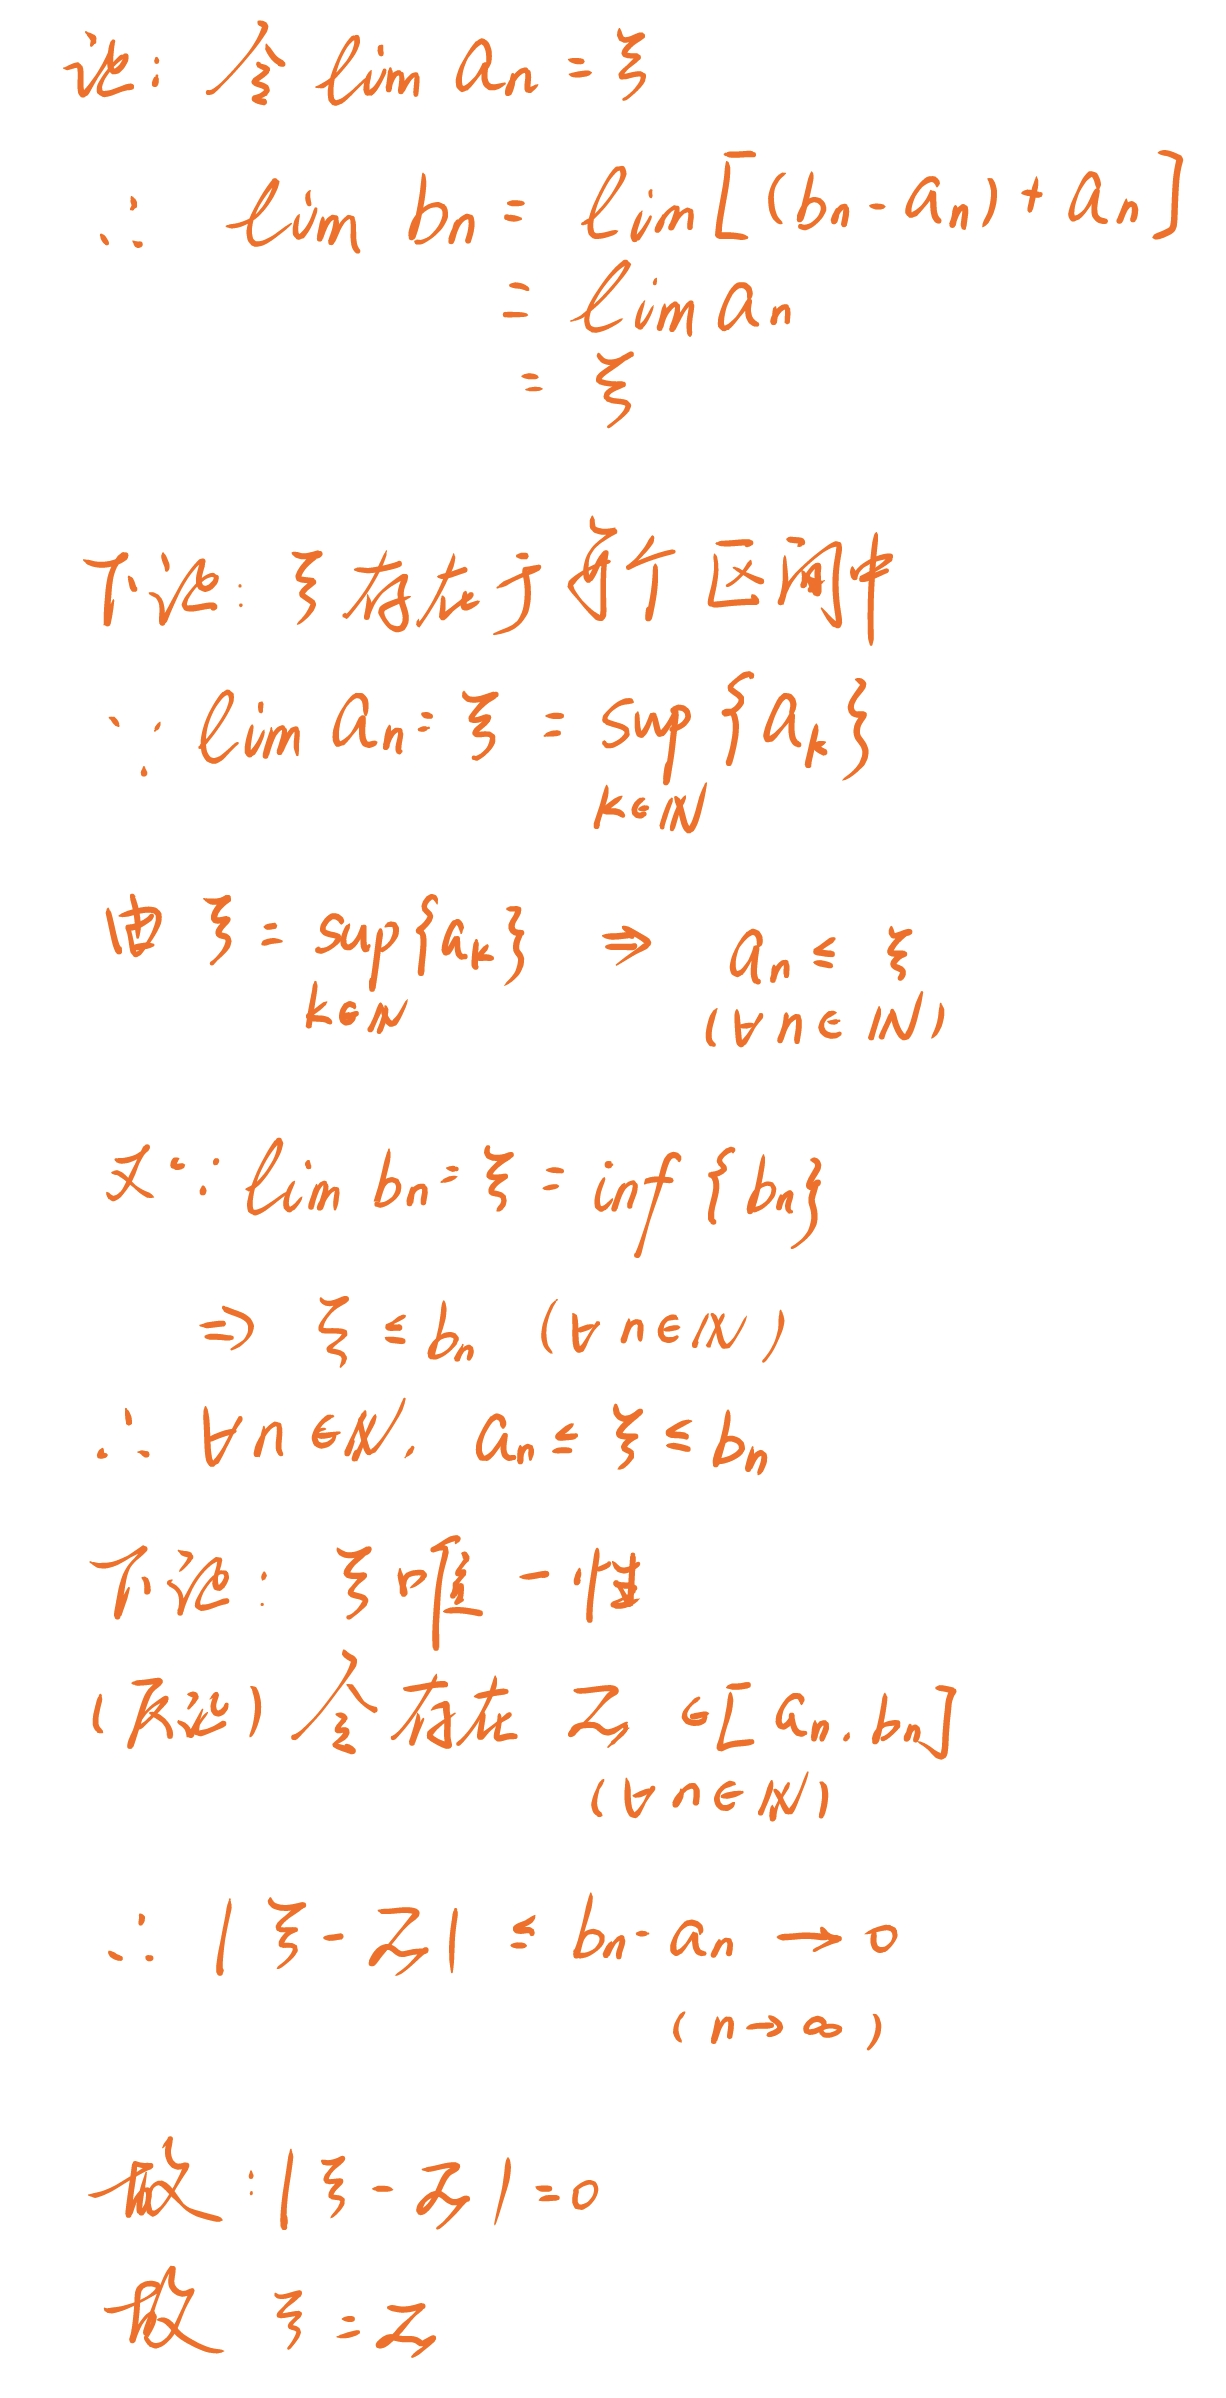 证: 令 lim aₙ = ξ
∴ lim bₙ = lim[(bₙ-aₙ)+aₙ]
= lim aₙ
= ξ
下证: ξ存在于每个区间中
∵ lim aₙ = ξ = sup{aₖ}
k∈N
由 ξ = sup{aₖ} ⇒ aₙ ≤ ξ
k∈N (∀n∈N)
又∵ lim bₙ = ξ = inf{bₙ}
⇒ ξ ≤ bₙ (∀n∈N)
∴ ∀n∈N, aₙ ≤ ξ ≤ bₙ
下证: ξ唯一性
(反证) 令存在 Z ∈[aₙ.bₙ]
(∀n∈N)
∴ |ξ-Z| ≤ bₙ-aₙ → 0
(n→∞)
故:|ξ-Z|=0
故 ξ=Z